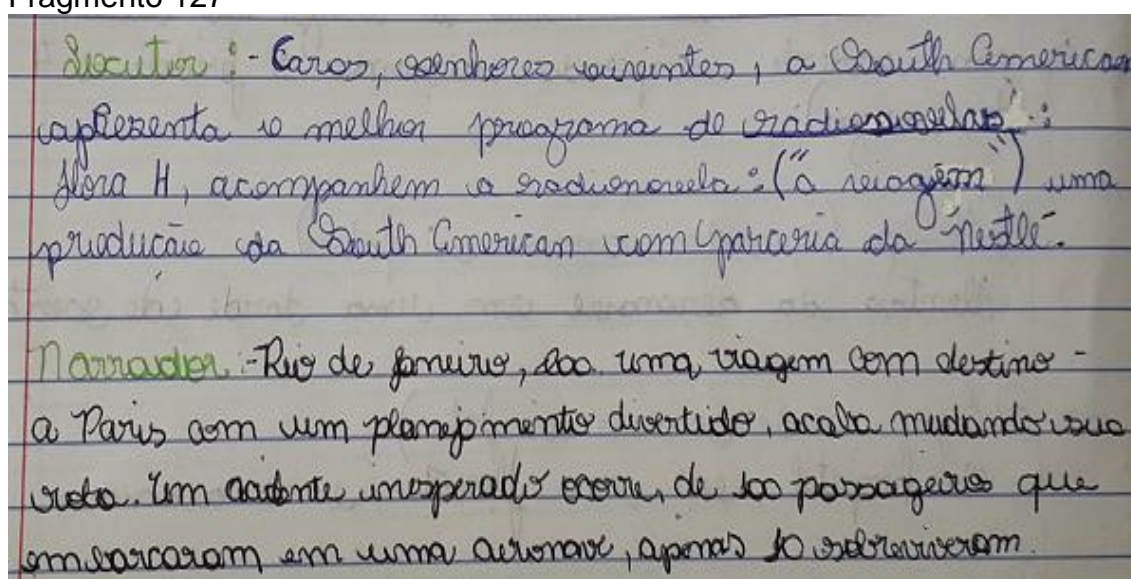 Fragmento 127
Locutor: - Caros, senhores ouvintes, a South American
apresenta o melhor programa de radionovelas:
Hora H, acompanhem a radionovela: ("a viagem") uma
producão da South American com parceria da Nestlé.
Narrador: - Rio de Janeiro, uma viagem com destino -
a Paris com um planejamento divertido, acaba mudando sua
rota. Um acidente inesperado ocorre, de 100 passageiros que
embarcaram em uma aeronave, apenas 10 sobreviveram.